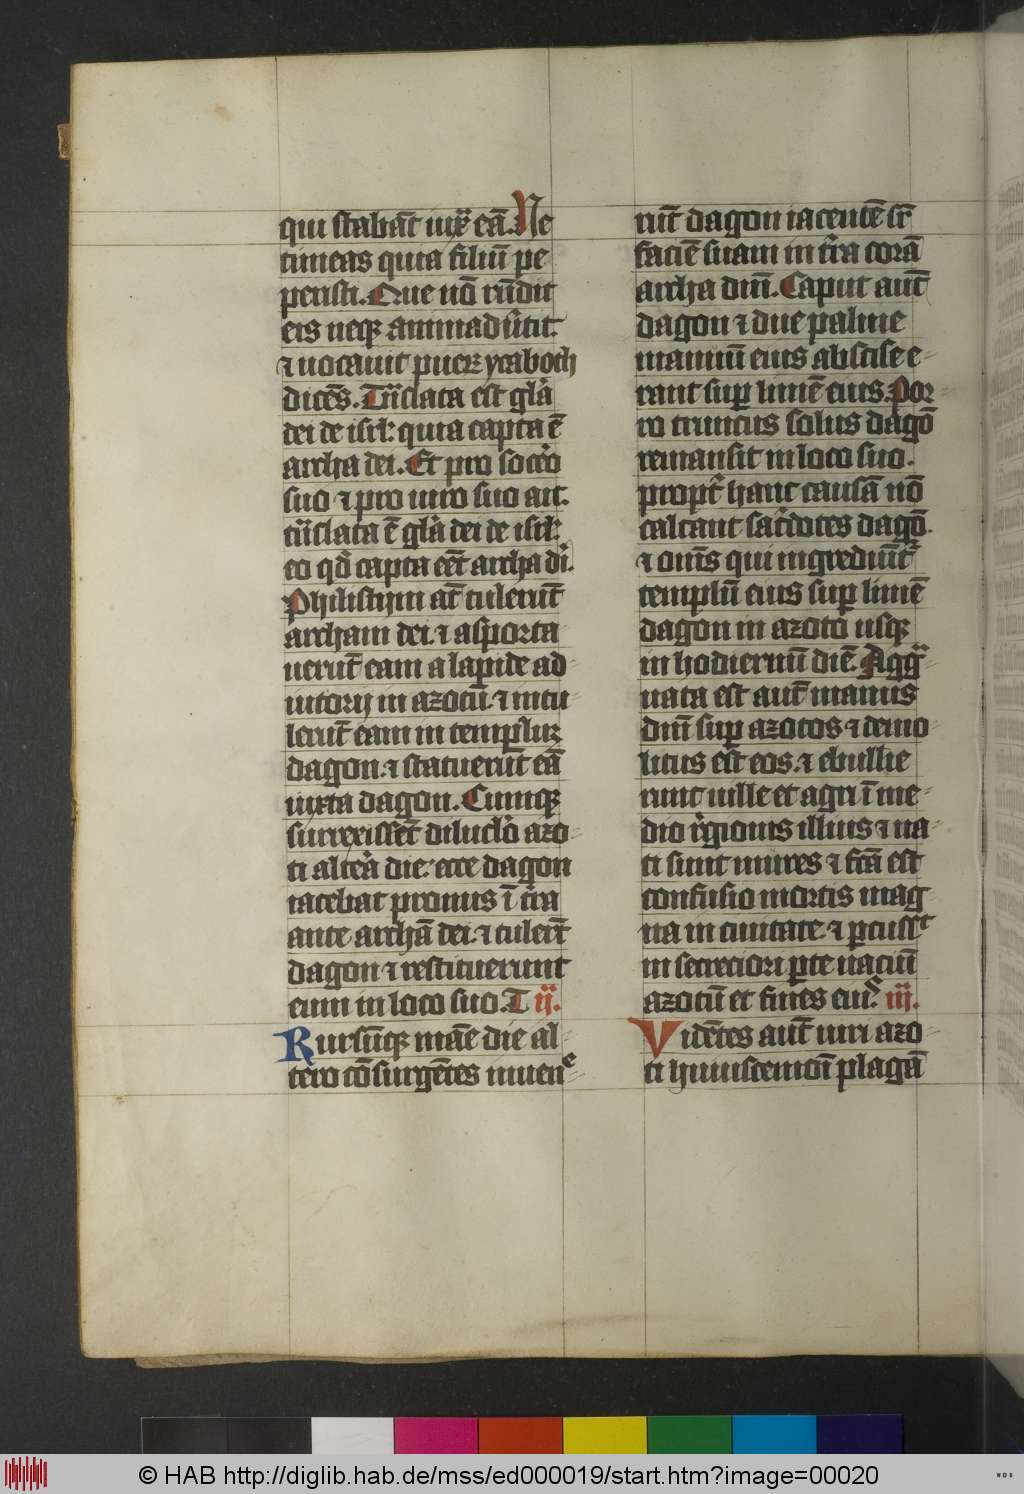 qui stabāt iuxͣ eā. Ne
timeas quia filiū pe
peristi. Que nō rn̄dit
eis neqꝫ animaduͥtit.
⁊ uocauit pueꝝ ycaboch
dicēs. Tn̄slata est glͣa
dei de isrl: quia capta ē
archa dei. Et pro socͦo
suo ⁊ pro uiro suo ait.
tn̄slata ē glͣa dei de isrl:
eo qd̓ capta eēt archa di͛.
Philistijm at̄ tulerūt
archam dei. ⁊ asporta
uerūt eam a lapide ad
iutorij in azotū. ⁊ intu
lerūt eam in templuꝫ
dagon. ⁊ statuerūt eā
iuxta dagon. Cumqꝫ
surrexissēt dilucl̓o azo
ti altͣa die: ecce dagon
iacebat pronus ī tr̓a
ante archā dei. ⁊ tuler̄t
dagon ⁊ restituerunt
eum in loco suo. T ij.
Rursūqꝫ māe die al
tero cōsurgētes inuenͤ
nūt dagon iacentē sr̄
faciē suam in tr̓a corā
archa dn̄i. Caput aut̄
dagon ⁊ due palme
manuū eius abscise e
rant suꝑ limē eius. Por
ro truncus solus dagō
remansit in loco suo.
propt̓ hanc causā nō
calcant sac̓dotes dagō.
⁊ omīs qui ingrediūtᷣ
templū eius suꝑ limē
dagon in azoto usqꝫ
in hodiernū diē. Aggͣ
uata est aut̄ manus
dn̄i suꝑ azotos ⁊ demo
litus est eos. ⁊ ebullie
runt uille et agri ī me
dio r̓gionis illius ⁊ na
ti sunt mures ⁊ fcā est
confusio mortis mag
na in ciuitate. ⁊ ꝑcussᵗ
in secreciori ꝑte naciū
azotū et fines eiuꝰ. iij.
Vidētes aut̄ uiri azo
ti huiuscemōi plagā
© HAB http://diglib.hab.de/mss/ed000019/start.htm?image=00020